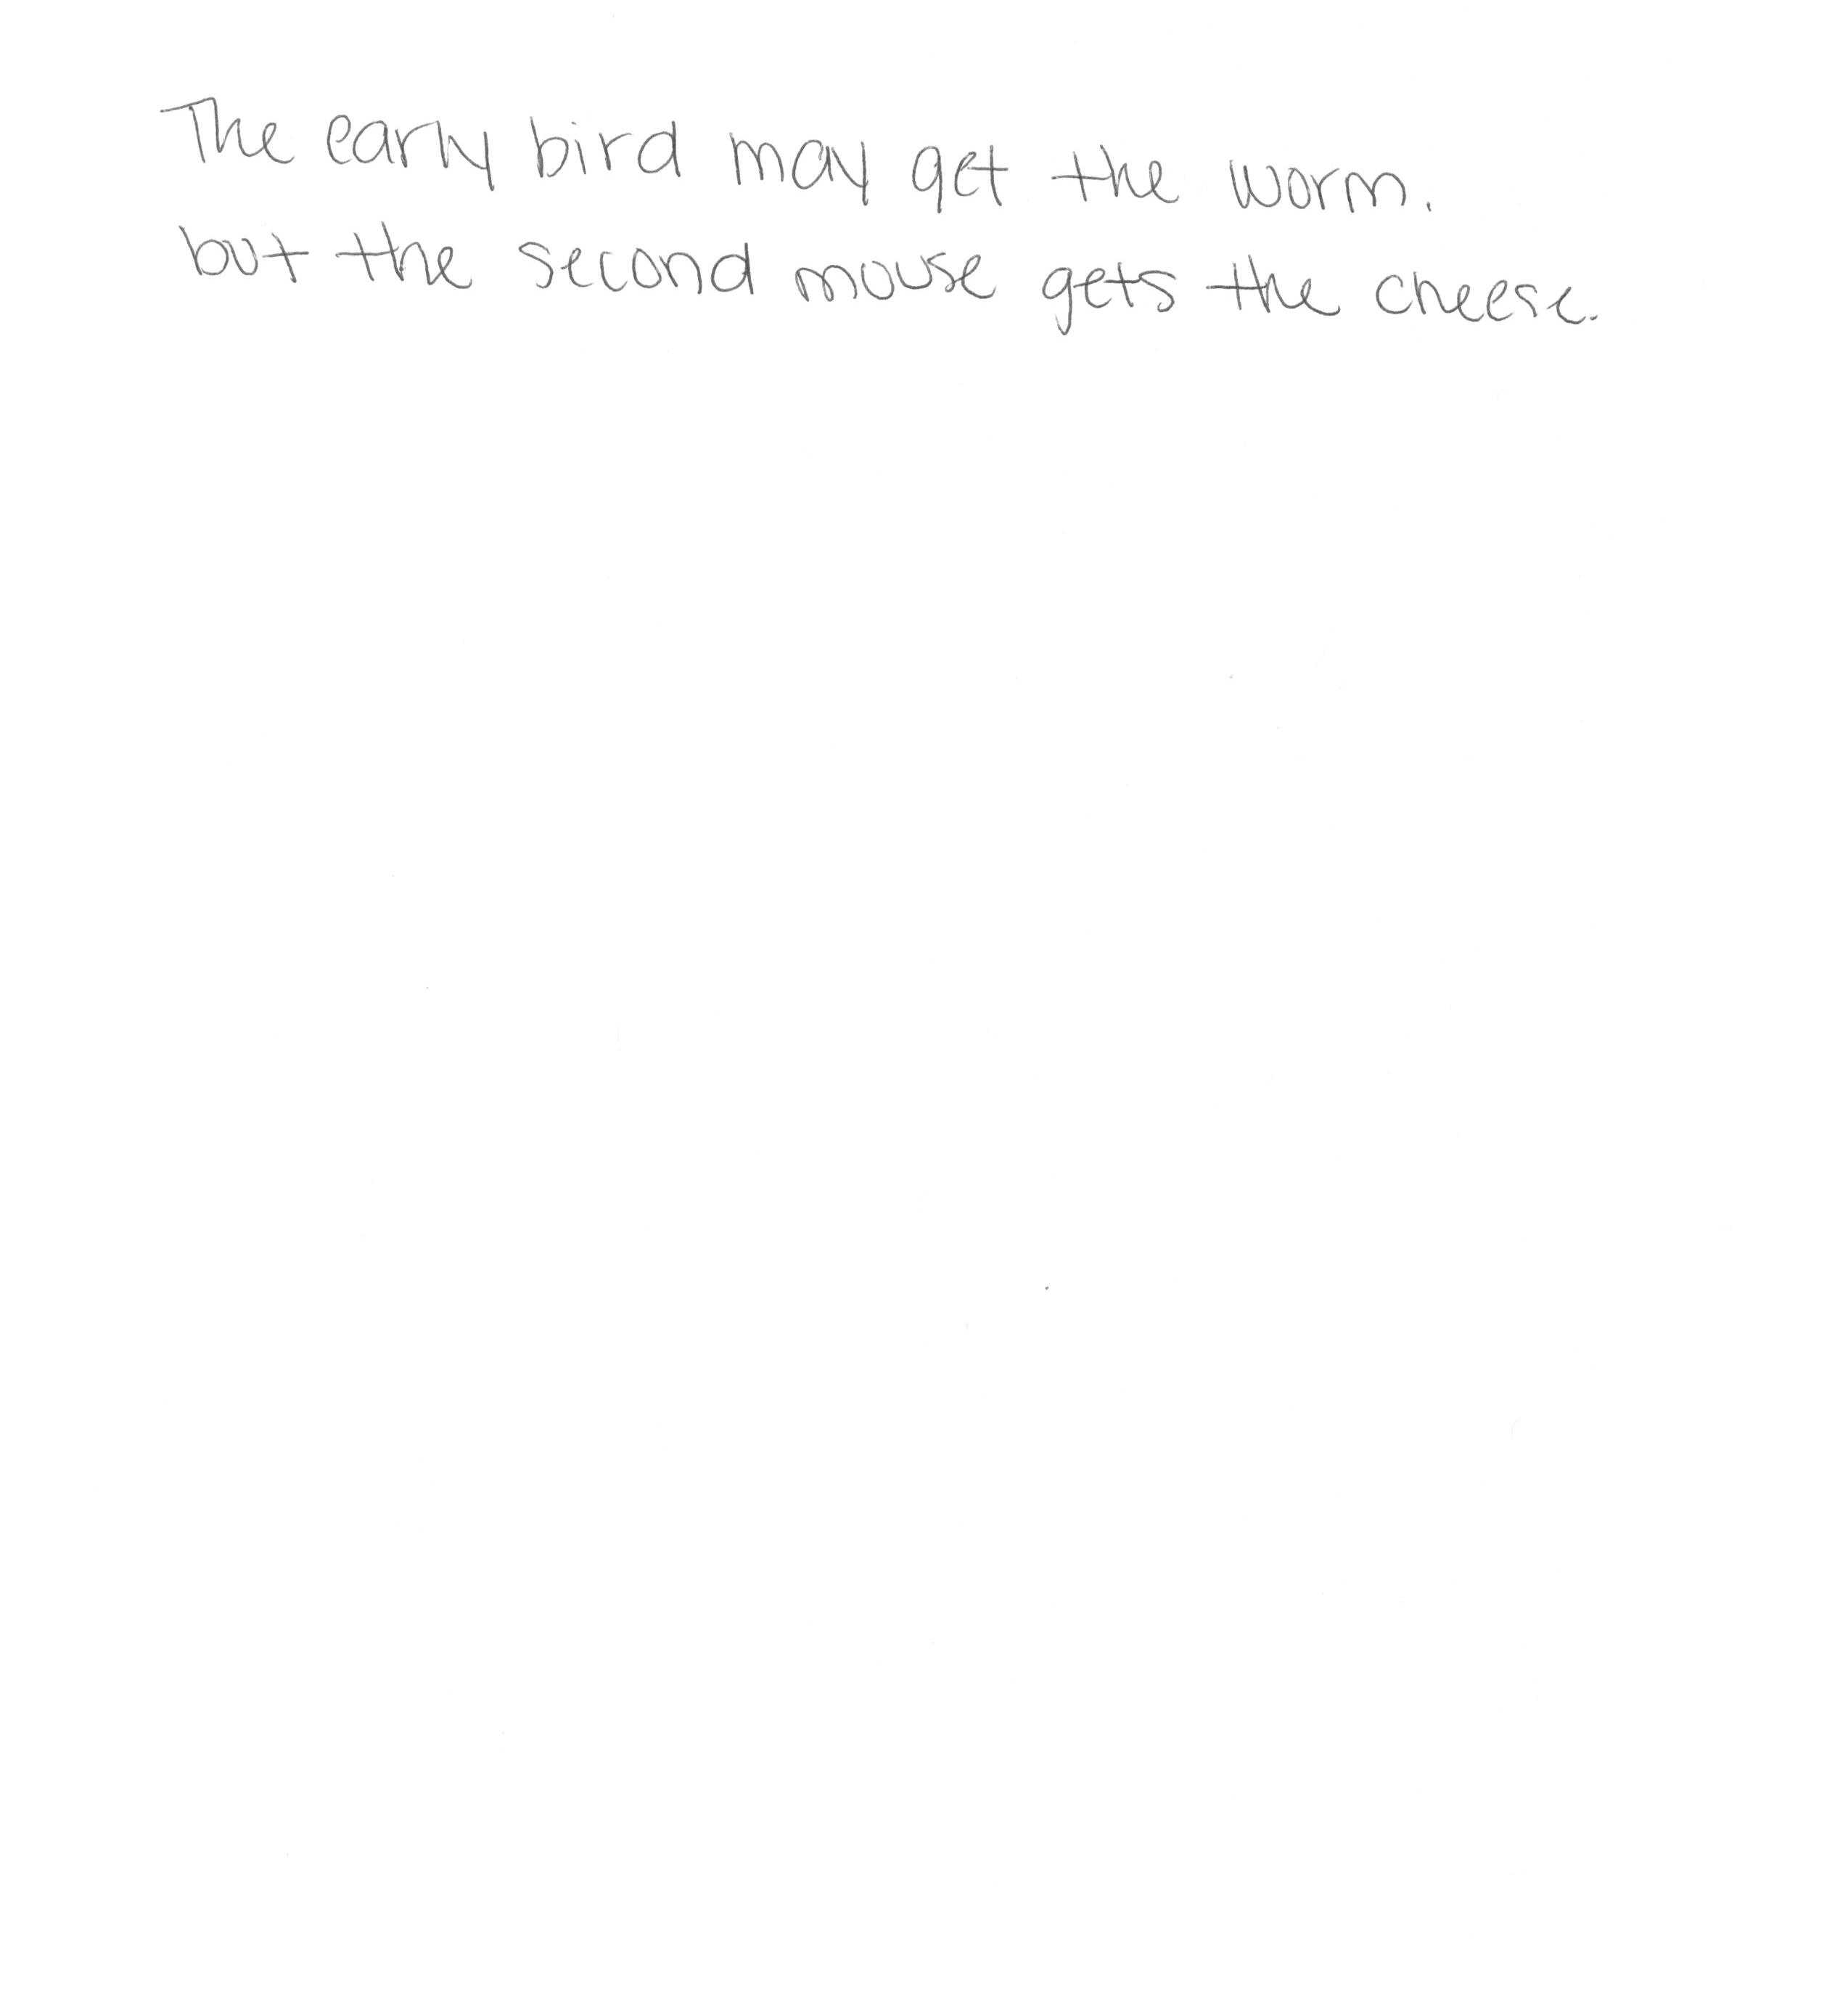 The early bird may get the worm.
but the second mouse gets the cheese.